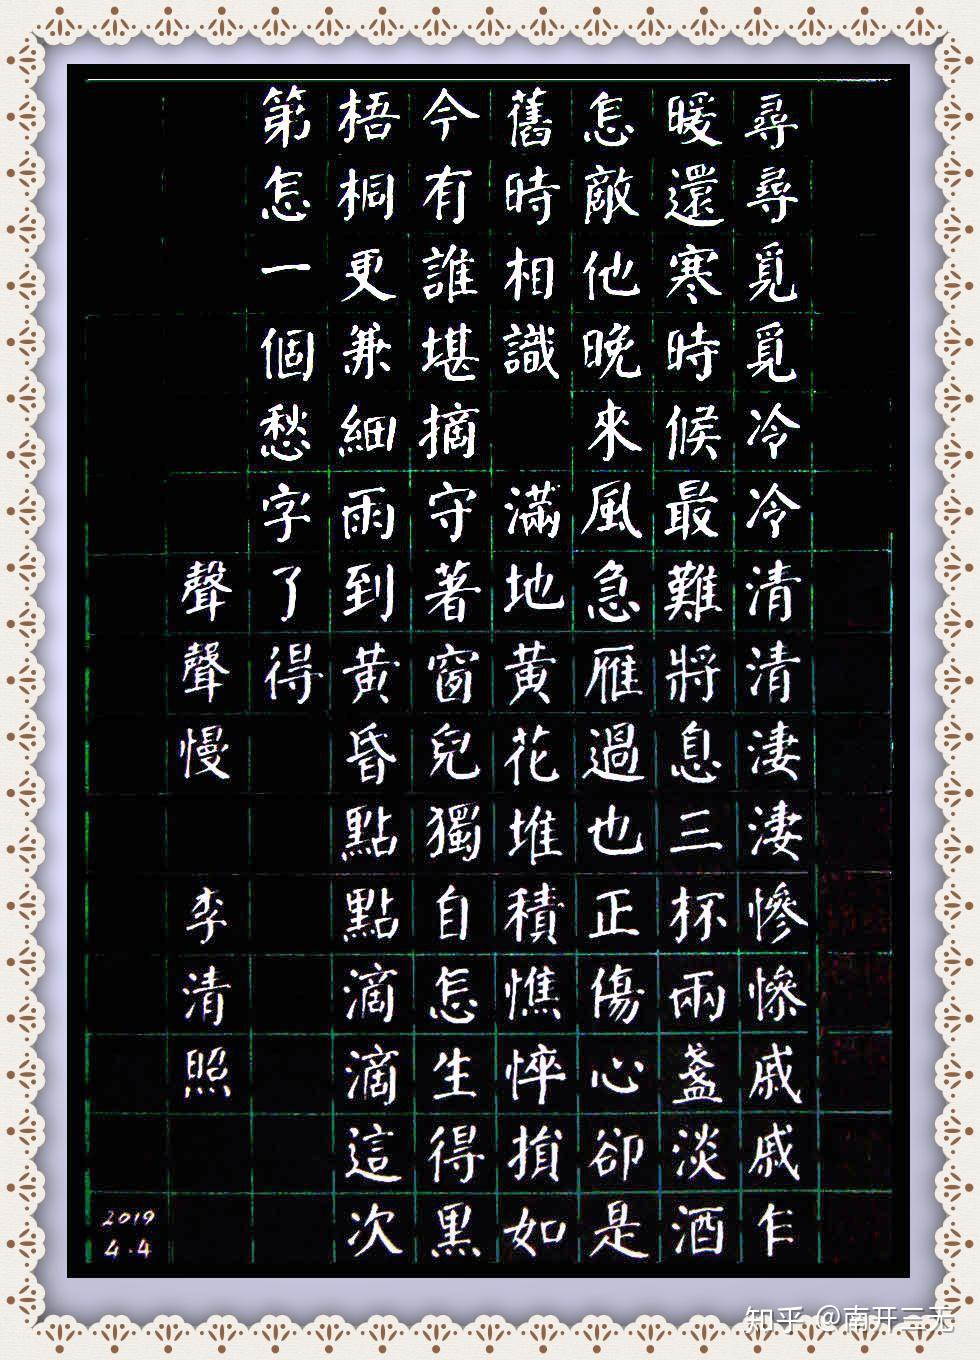 尋尋覓覓冷冷清清淒淒慘慘戚戚乍
暖還寒時候最難將息三杯兩盞淡酒
怎敵他晚來風急雁過也正傷心卻是
舊時相識 滿地黃花堆積憔悴損如
今有誰堪摘守著窗兒獨自怎生得黑
梧桐更兼細雨到黃昏點點滴滴這次
第怎一個愁字了得
聲聲慢 李清照
2019
4.4
知乎 @南开三无